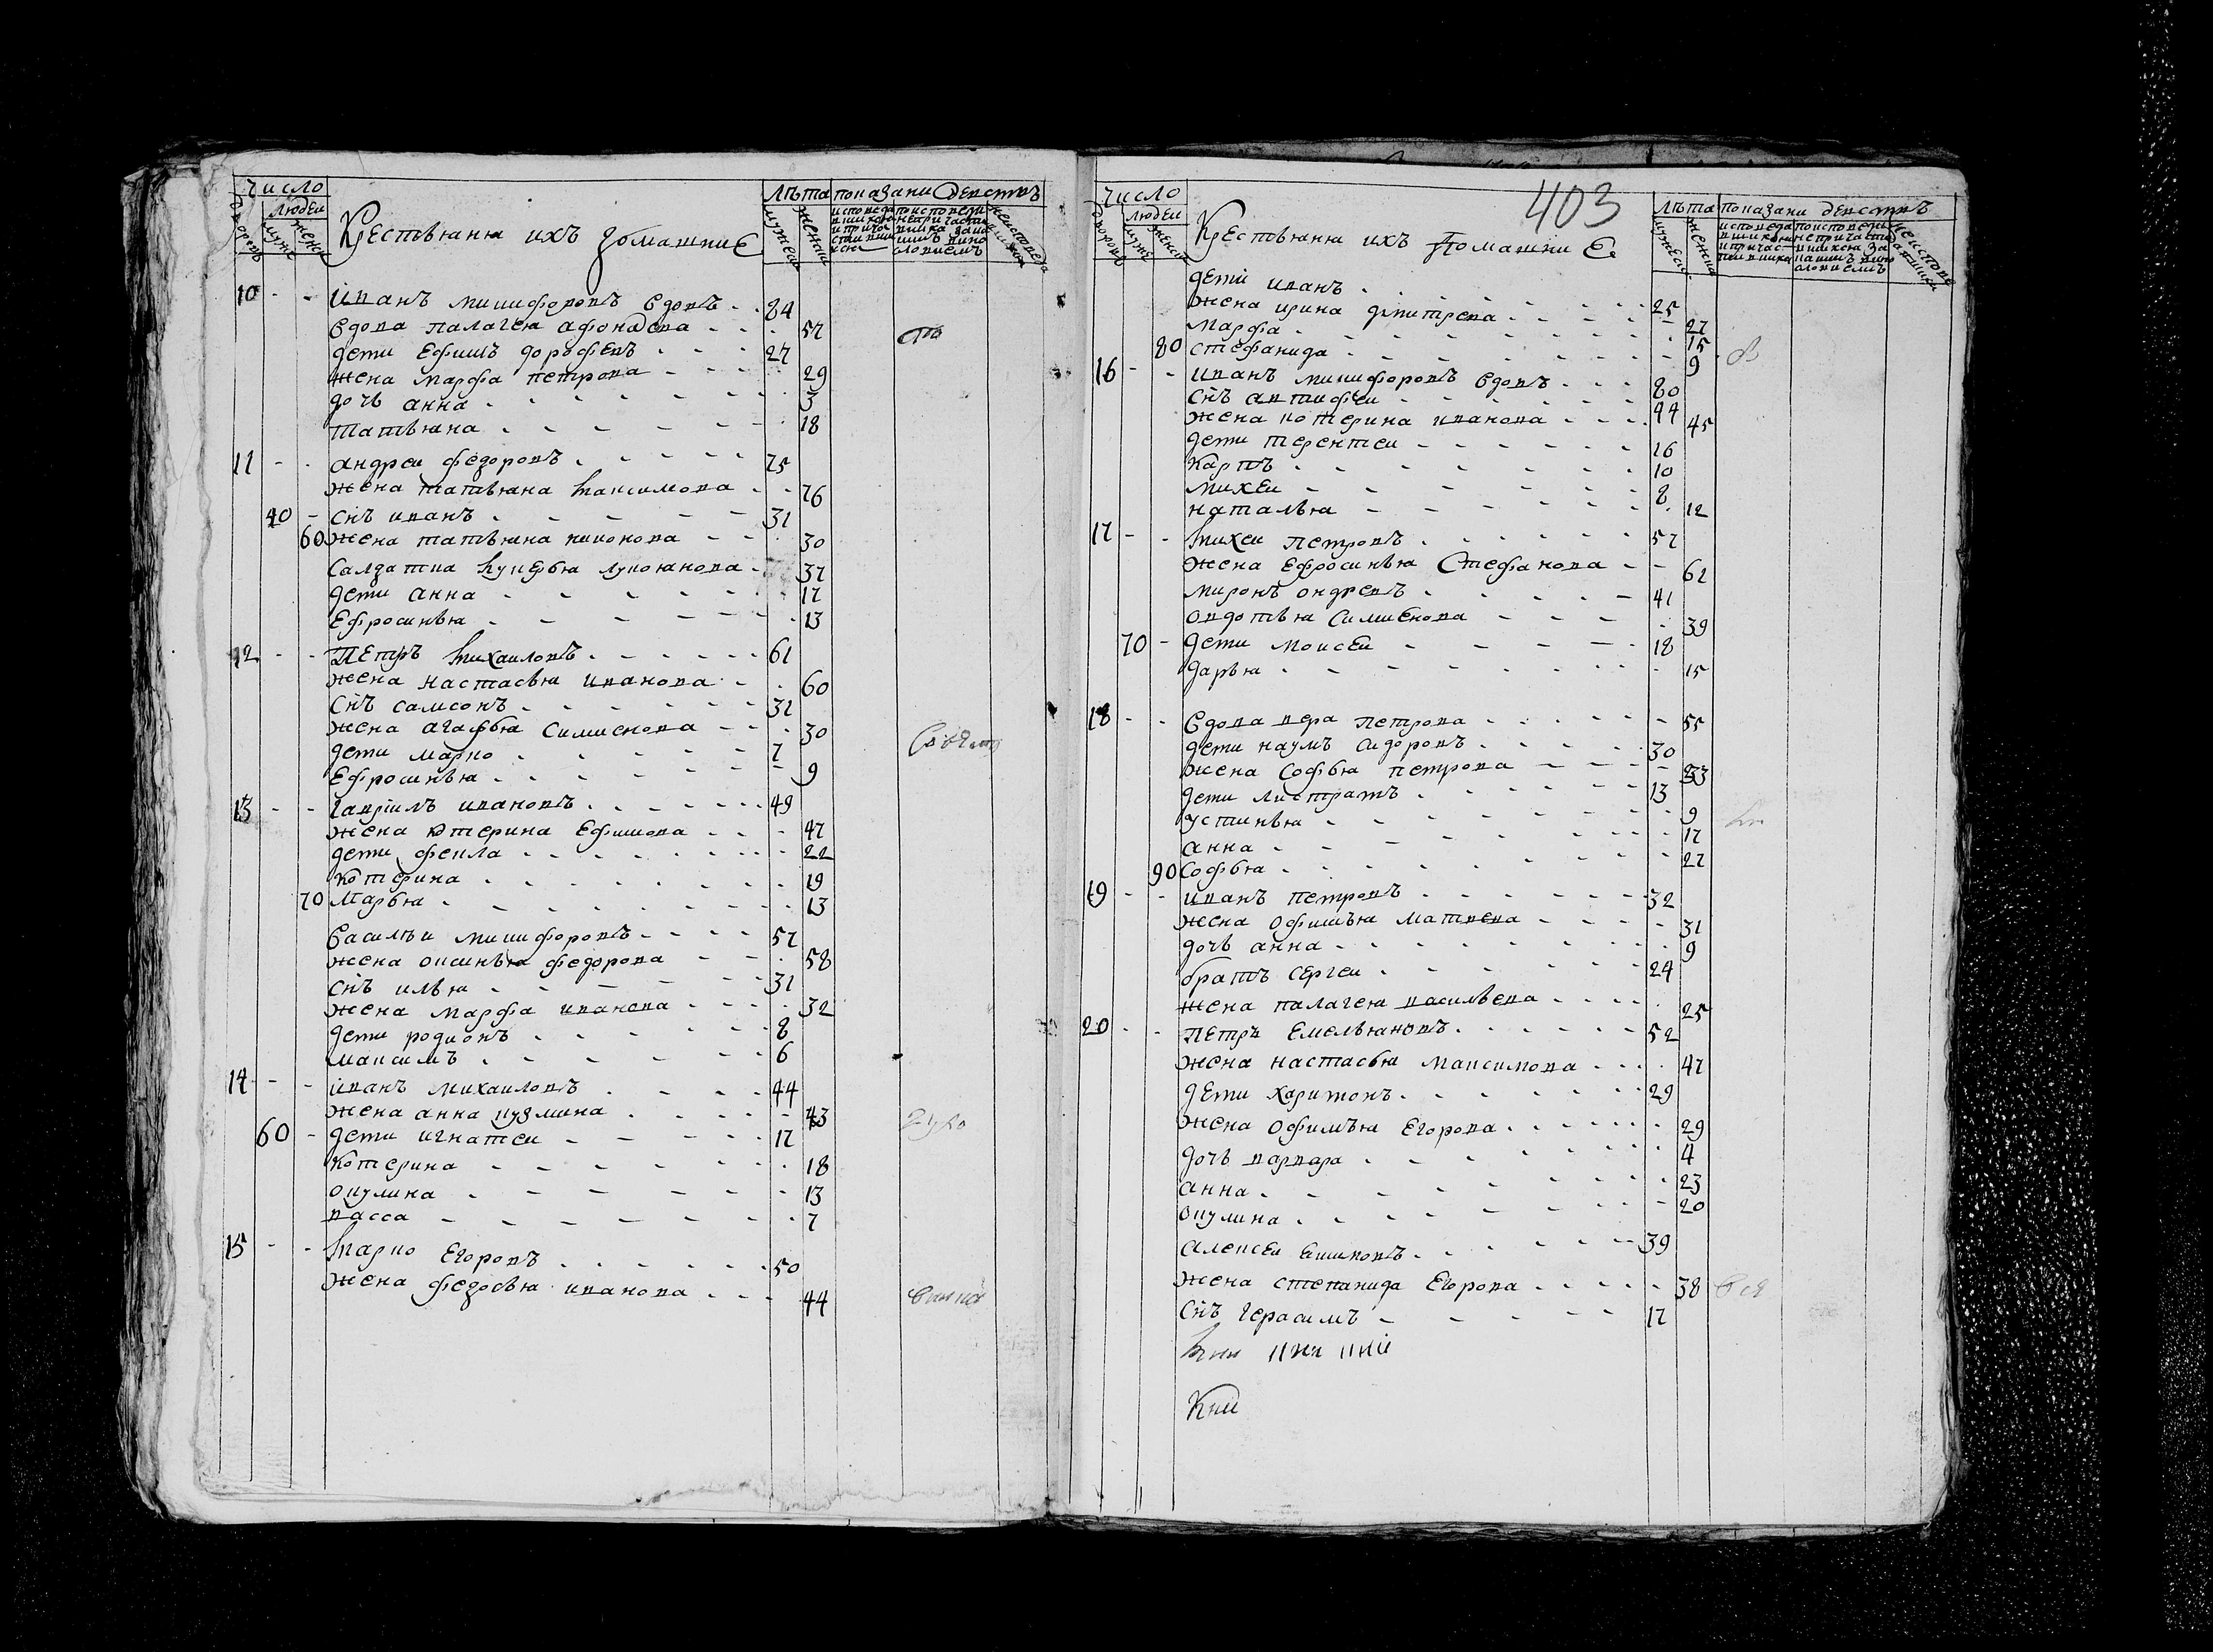 Число
Людеи
Лѣта показани деиствъ
дворовъ
мужс
женс
Крестьяня ихъ домашние
мужеск
женск
10 - - иванъ никифоровъ вдовъ 84
вдова палагея афонасева 57
дети ефимъ дорофеевъ 27
жена марфа петрова 29
дочь анна 3
татьяна 18
11 - - андреи федоровъ 75
жена татьяна максимова 76
40 - снъ иванъ 31
60 жена татьяна никонова 30
Салдатка лукоянова 37
дети анна 17
Ефросинья 13
12 - - Петръ михаиловъ 61
жена настасья иванова 60
снъ самсонъ 31
жена агафья симионова 30
дети марко 7
Ефросинья 9
13 - - гаврилъ ивановъ 49
жена котерина ефимова 47
дети фекла 22
Котерина 19
70 Марья 13
Василѣи никифоровъ 57
жена оксинья федорова 58
снъ илья 31
жена марфа иванова 32
дети родионъ 8
максимъ 6
14 - - иванъ михаиловъ 44
жена анна кузмина 43
60 - дети игнатеи 17
котерина 18
окулина 13
васса 7
15 - - марко Егоровъ 50
жена федосья иванова 44
403
Число
Людеи
Лѣта показани деиствъ
дворовъ
мужс
женск
Крестьяня ихъ домашние
мужеск
женск
дети иванъ 25
жена ирина дмитрева 27
марфа 15
80 стефанида 9
16 - - иванъ никифоровъ вдовъ 80
снъ антифеи 44
жена котерина иванова 45
дети терентеи 16
карпъ 10
михеи 8
наталья 12
17 - - михеи петровъ 57
жена Ефросинья Стефанова 61
миронъ ондревъ 41
овдотья Симионова 39
70 - дети моисеи 18
дарья 15
18 - - вдова вера петрова 55
дети наумъ сидоровъ 30
жена софья петрова 33
дети листратъ 13
устинья 9
анна 17
90 Софья 27
19 - - иванъ петровъ 32
жена офимья матвева 31
дочь анна 9
братъ сергеи 24
жена палагея васильева 25
20 - - петръ емельяновъ 52
жена настасья максимова 47
дети харитонъ 29
жена офимья Егорова 29
дочь варвара 4
анна 23
окулина 20
алексеи 39
жена степанида Егорова 38
снъ герасимъ 17